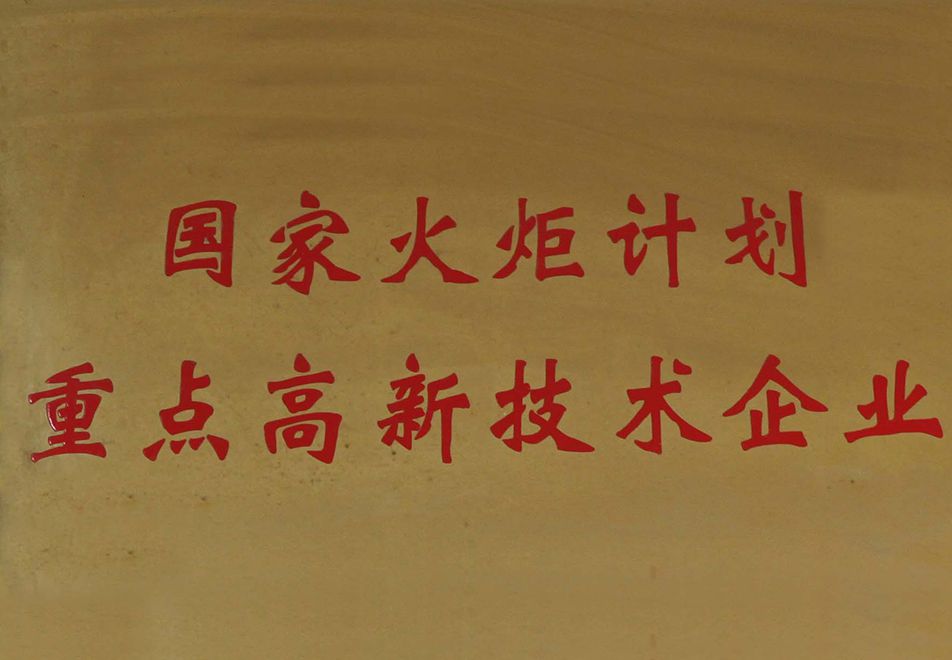 国家火炬计划
重点高新技术企业